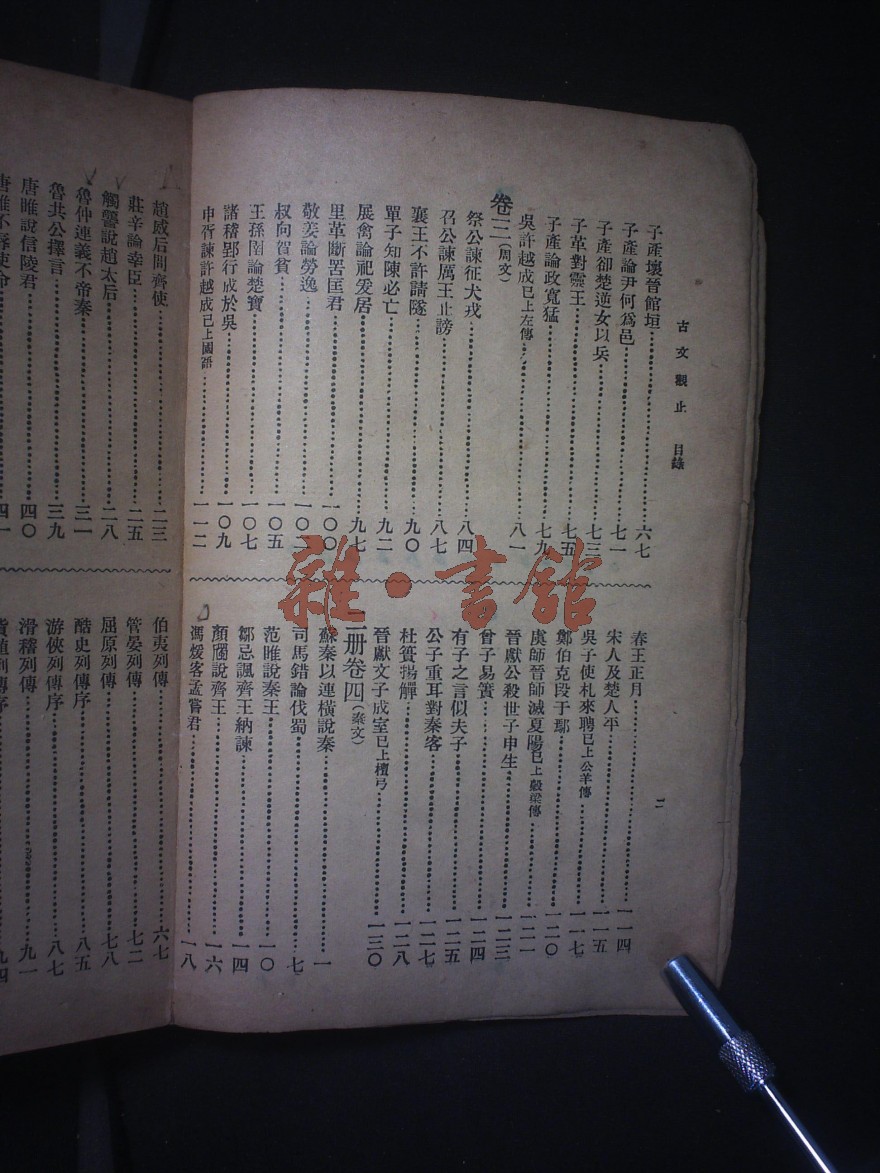 古文觀止 目錄
二
子產壞晉館垣 六七
子產論尹何爲邑 七一
子產卻楚逆女以兵 七三
子革對靈王 七五
子產論政寬猛 七九
吳許越成已上左傳 八一
卷三(周文)
祭公諫征犬戎 八四
召公諫厲王止謗 八七
襄王不許請隧 九〇
單子知陳必亡 九二
展禽論祀爰居 九七
里革斷罟匡君 一〇〇
敬姜論勞逸 一〇二
叔向賀貧 一〇五
王孫圉論楚寶 一〇七
諸稽郢行成於吳 一〇九
申胥諫許越成已上國語 一一二
春王正月 一一四
宋人及楚人平 一一五
吳子使札來聘已上公羊傳 一一七
鄭伯克段于鄢 一二〇
虞師晉師滅夏陽已上穀梁傳 一二一
晉獻公殺世子申生 一二三
曾子易簀 一二四
有子之言似夫子 一二五
公子重耳對秦客 一二七
杜蕢揚觶 一二八
晉獻文子成室已上檀弓 一三〇
二册卷四(秦文)
蘇秦以連橫說秦 一
司馬錯論伐蜀 七
范雎說秦王 一〇
鄒忌諷齊王納諫 一四
顏斶說齊王 一六
馮煖客孟嘗君 一八
趙威后問齊使 二三
莊辛論幸臣 二五
觸讋說趙太后 二八
魯仲連義不帝秦 三一
魯共公擇言 三九
唐雎說信陵君 四〇
唐雎不辱使命 四一
伯夷列傳 六七
管晏列傳 七二
屈原列傳 七八
酷吏列傳序 八五
游俠列傳序 八七
滑稽列傳 九一
貨殖列傳序 九四
雜·書館